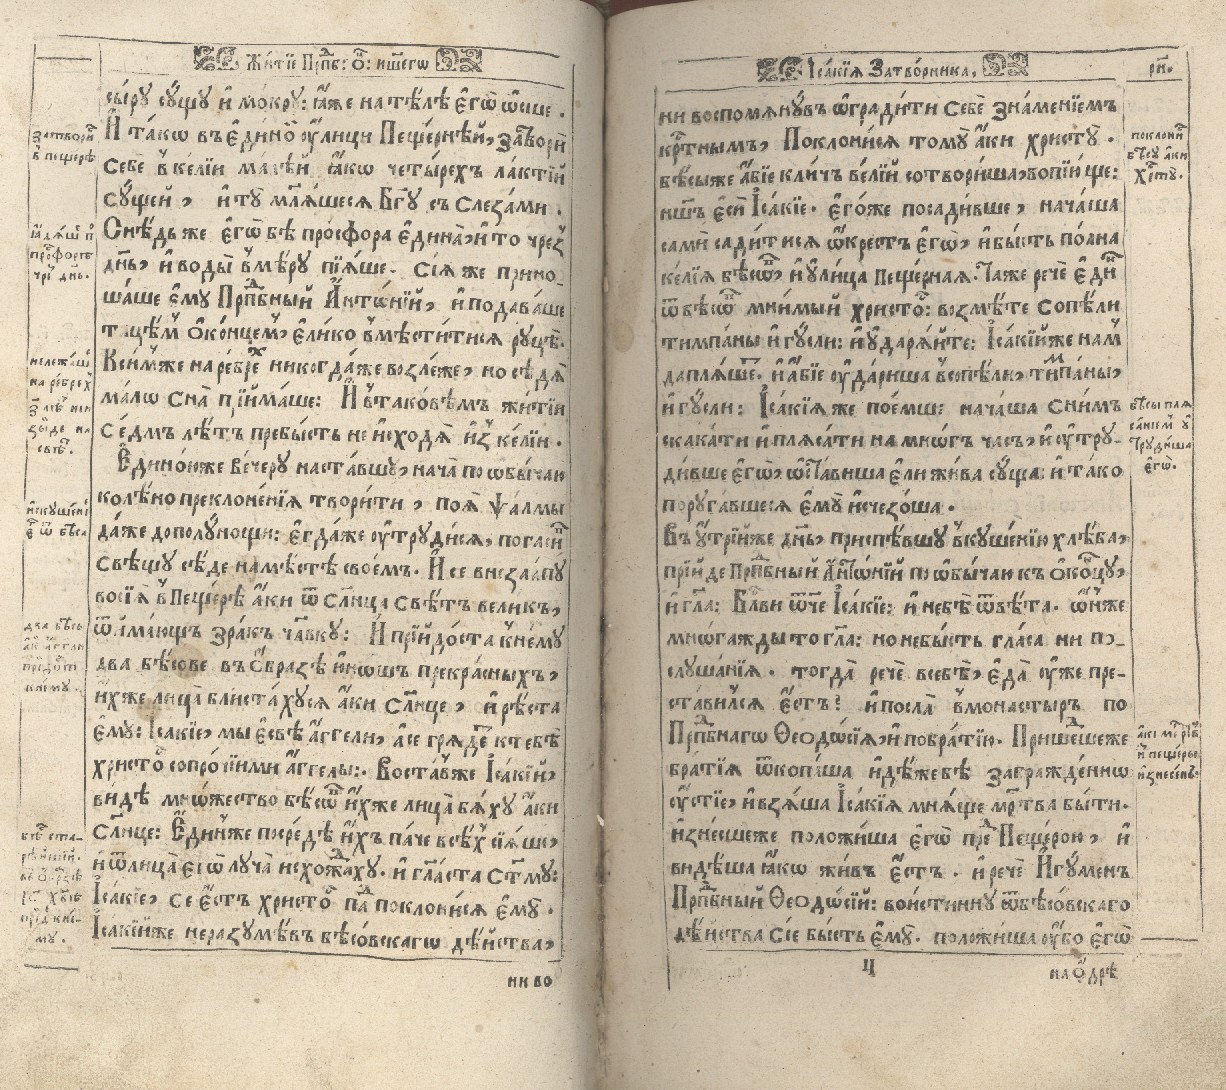 Житїе Прпⷣб: Ѻ҃: нш҃егѡ
сы́ру сꙋ́щу и҆ мо́кру: ꙗ҆́же на тѣ́лѣ є҆гѡ̀ ѡ҆́сше.
И҆ та́кѡ въ є҆ди́но̀ ᲂу҆́лици Пеще́рнѣй, затвори́
Себѐ в̾ ке́лїи ма́лѣй ꙗ҆́кѡ четы́рехъ ла́ктїй
Сꙋ́щей, и҆ тꙋ̀ молѧ́шесѧ Бг҃у съ Слеза́ми.
Снѣ́дь же є҆гѡ̀ бѣ̀ про́сфора є҆ди́на, и҆ то̀ чрез̾
дн҃ь, и҆ воды̀ в̾ мѣ́ру пїѧ́ше. Сїѧ̑ же прино_
ша́ше є҆му̀ Прпⷣбный А҆нтѡ́нїй, и҆ подава́ше
тѣ́мъ ѻ҆ко́нцемъ, є҆ли́ко вмѣсти́тисѧ рꙋцѣ̀.
К симже на ре́брѣхъ никогда́же возлежѐ, но сѣдѧ̀
ма́лѡ сна̀ прїима́ше: И҆ в̾ тако́вѣмъ житїи
Се́дмъ лѣ́тъ пребы́сть не и҆сходѧ̀ и҆з̾ ке́лїи.
Єди́ною же ве́черу наста́вшу, нача̀ по ѡ҆бы́чаю
колѣ́но преклоне́нїѧ твори́ти, поѧ̀ ѱалмы̀
да́же до полꙋ́нощи: є҆гда́же ᲂу҆трꙋди́сѧ, погаси́
свѣщу̀ сѣ́де на мѣ́стѣ свое́мъ. И҆ се внеза́апу
возсїѧ̀ в̾ Пеще́рѣ а҆́ки ѿ Слн҃ца Свѣ́тъ вели́къ,
ѿима́ющъ зра́къ чл҃вку: И҆ прїидо́ста к̾ нему̀
два бѣ́сове въ ѻ҆́бразѣ ю҆́ношъ прекра́сныхъ,
и҆́хже ли́ца блиста́хусѧ а҆́ки Слн҃це, и҆ рѣ́ста
є҆му̀: І҆саа́кїе, мы̀ є҆свѣ̀ а҆́ггели, а҆ се грѧде́тъ к тебѣ̀
христо́съ со про́чїими а҆́ггелы:. Воста́вже І҆са́кїй,
ви́дѣ мно́жество бѣсѡ́въ и҆́хже ли́ца бѧ́ху а҆́ки
Слн҃це: Є҆ди́нъже посредѣ̀ и҆́хъ па́че всѣ́хъ сїѧ́ше,
и҆ ѿ лица̀ є҆гѡ̀ луча̀ и҆схожда́ху. и҆ гл҃аста Ст҃му:
І҆са́кїе, се є҆́стъ христо́съ па́дъ поклони́сѧ є҆му̀.
І҆са́кїйже не разумѣ́въ бѣсо́вскагѡ дѣ́йства,
ни во
затвори́
в̾ пещерѣ
ꙗдѧ́ше
просфорꙋ
чрез̾ дн҃ь.
не лежаше
на ребрѣх
з҃ лѣт̾ не
изыде на
свѣт̾.
и҆скушені
є҆ ѿ бѣсъ
два бѣсы
а҆́ки а҆ггли
прїидоста
к нему.
І҆са́кїѧ Затво́рника,
рн҃.
ни воспомѧнꙋ́въ ѡ҆гради́ти Себѐ зна́менїемъ
крⷭ҇тнымъ, Поклони́сѧ тому̀ а҆́ки христꙋ̀.
бѣ́сыже а҆́бїе кли́чъ ве́лїй сотвори́ша, вопїю́ще:
на́шъ є҆сѝ І҆са́кїе. є҆го́же посади́вше, нача́ша
са́ми сади́тисѧ ѡ҆́крестъ є҆гѡ̀, и҆ бы́сть полна
ке́лїѧ бѣсѡ́въ, и҆ ᲂу҆́лица пеще́рнаѧ. Таже речѐ є҆ди́нъ
ѿ бѣсѡ́въ мни́мый христо́съ: возмѣ́те сопѣ́ли
тимпа́ны и҆ гꙋ́сли: и҆ ᲂу҆да́рѧйте: І҆са́кїйже нам̾
да плѧ́шетъ. и҆ а҆́бїе ᲂу҆да́риша в̾ сопѣ́ли, тимпа́ны,
и҆ гꙋ́сли: І҆са́кїѧ же пое́мше нача́ша сни́мъ
скака́ти и҆ плѧса́ти на мно́гъ ча́съ, и҆ ᲂу҆трꙋ-
ди́вше є҆гѡ̀, ѡ҆ста́виша є҆лѝ жи́ва сꙋ́ща: и҆ та́ко
поруга́вшесѧ є҆мꙋ̀ и҆счезо́ша.
Въ ᲂу҆́трїйже дн҃ь, приспѣ́вшу вкуше́нїю хлѣ́ба,
прїи́де Прпⷣбный А҆нтѡ́нїй по ѡ҆бы́чаю къ ѻ҆ко́нцу,
и҆ гл҃а: Бл҃ви ѿче І҆са́кїе: и҆ не бѣ̀ ѿвѣ́та. ѡ҆́нже
мно́гажды то гл҃а: но не бы́сть гла́са ни по_
слу́шанїѧ. тогда̀ речѐ в себѣ̀, є҆да̀ ᲂу҆же пре-
ста́вилсѧ є҆́стъ? и҆ посла̀ в̾ монасты́ръ по
Прпⷣбнаго Ѳеодѡ́сїѧ, и҆ по бра́тїю. Прише́дшеже
бра́тїѧ ѿкопа́ша и҆дѣ́же бѣ̀ загражде́нно
ᲂу҆́стїе, и҆ взѧ́ша І҆са́кїѧ мнѧ́ще ме́ртва бы́ти.
и҆знесшеже положи́ша є҆гѡ̀ пред̾ Пеще́рою, и҆
ви́дѣша ꙗ҆́кѡ жи́въ є҆́стъ. и҆ речѐ И҆гу́менъ
Прпⷣбный Ѳеодѡ́сїй: вои́стинну ѿ бѣсо́вскаго
дѣ́йства сїѐ бы́сть є҆мꙋ̀. положи́ша ᲂу҆́бо є҆гѡ̀
Ч
на ѻ҆дрѣ̀
поклони́
бѣсу а҆ки
Хрⷭ҇ту.
бѣсы плѧ
ᲂу҆трудиша
є҆гѡ̀.
а҆ки мертвъ
и҆з пещеры
и҆знесенъ.